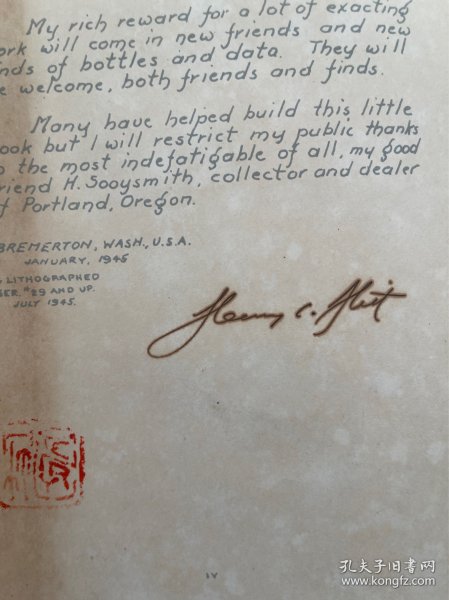 My rich reward for a lot of exacting
ork will come in new friends and new
nds of bottles and data. They will
e welcome, both friends and finds.
Many have helped build this little
ook but I will restrict my public thanks
o the most indefatigable of all, my good
riend H. Sooysmith, collector and dealer
f Portland, Oregon.
BREMERTON, WASH., U.S.A.
JANUARY, 1945
LITHOGRAPHED
SER. #29 AND UP.
JULY 1945.
Henry C.
IV
孔夫子旧书网
www.kongfz.com